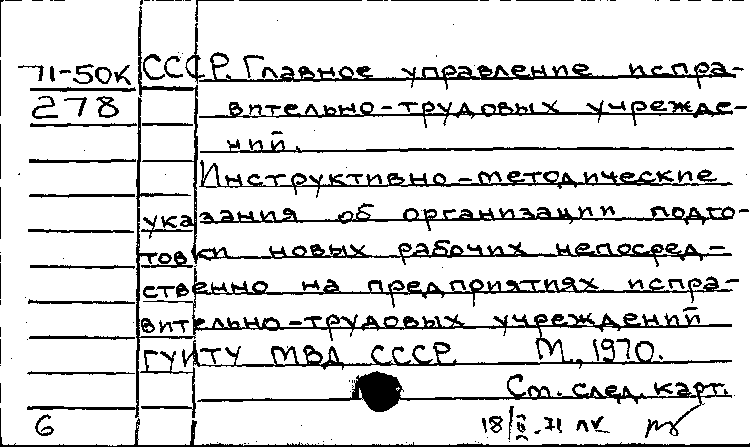 71-50к СССР. Главное управление испра-
278 вительно-трудовых учрежде-
ний.
Инструктивно-методические
указания об организации подго-
товки новых рабочих непосред-
ственно на предприятиях испра-
вительно-трудовых учреждений
ГУИТУ МВД СССР. М., 1970.
См. след. карт.
6 18/II.71 лк